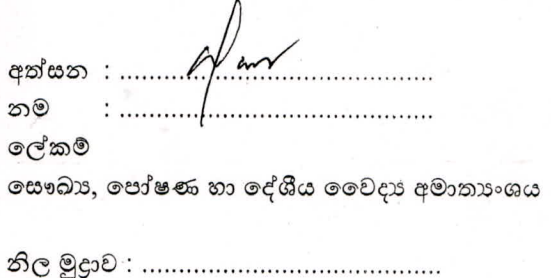 අත්සන : ..................................................
නම : ..................................................
ලේකම්
සෞඛ්‍ය, පෝෂණ හා දේශීය වෛද්‍ය අමාත්‍යංශය
නිල මුද්‍රාව : ................................................